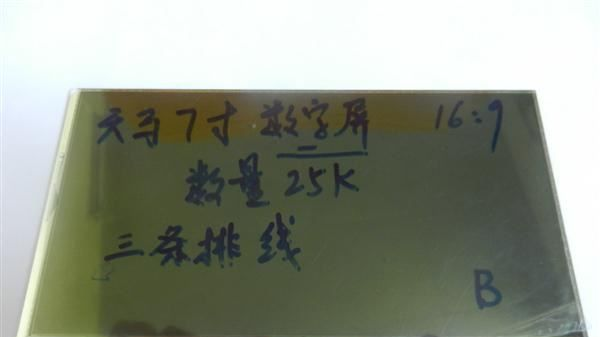 天马7寸 数字屏 16:9
数量 25K
三条排线
B